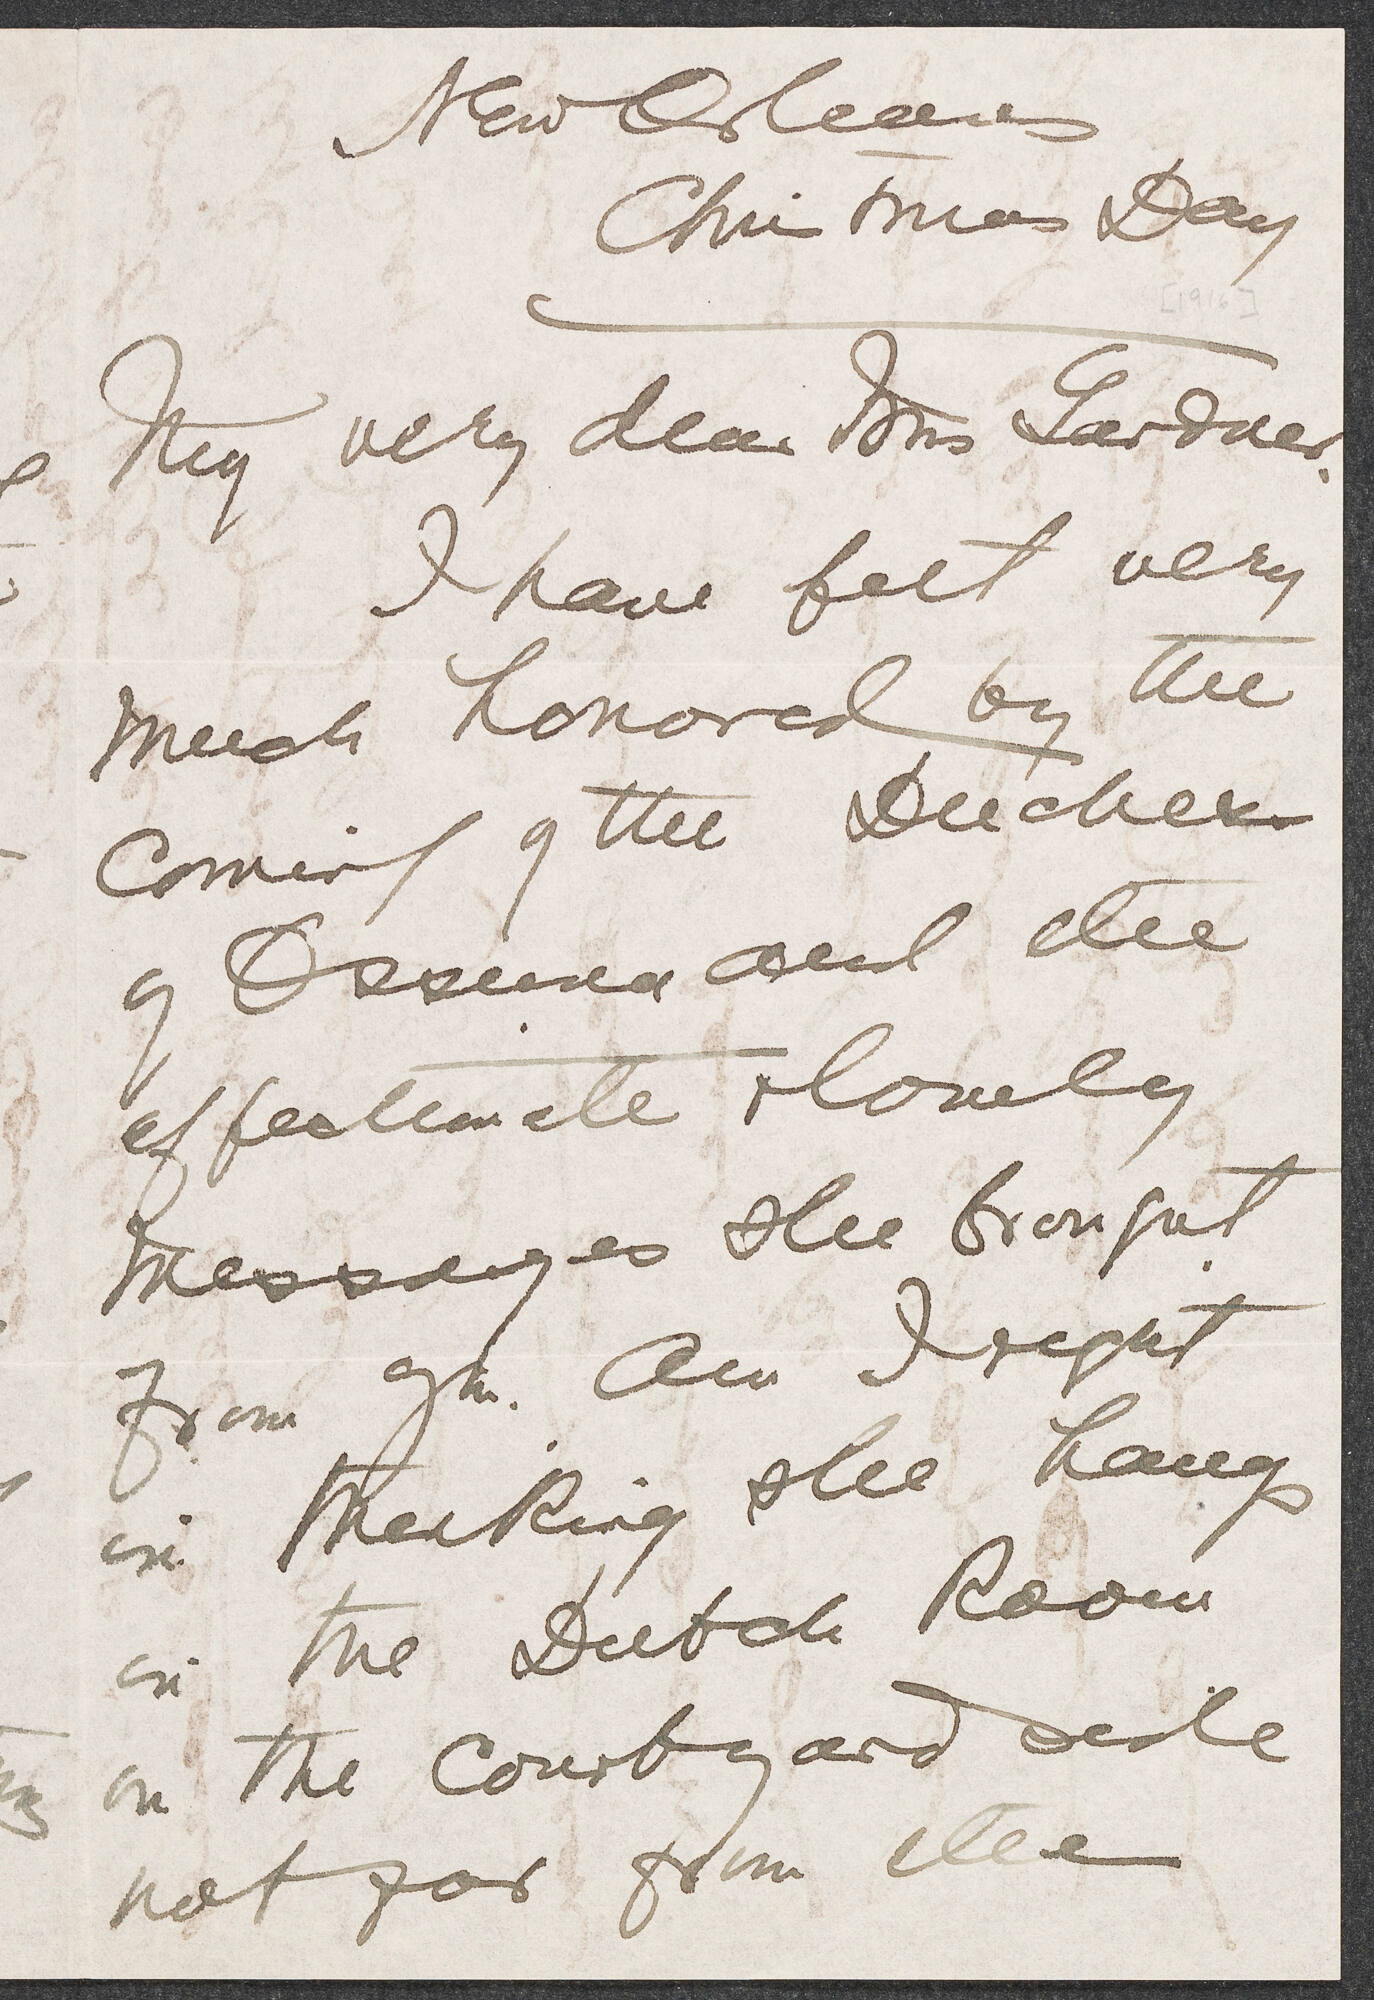 New Orleans
Christmas Day
[1916]
My very dear Mrs Gardner.
I have felt very
much honored by the
coming of the Duchess
of Ossuna and the
affectionate & lovely
messages she brought
from you. Am I right
in thinking she hangs
in the Dutch Room
on the Courtyard side
not far from the